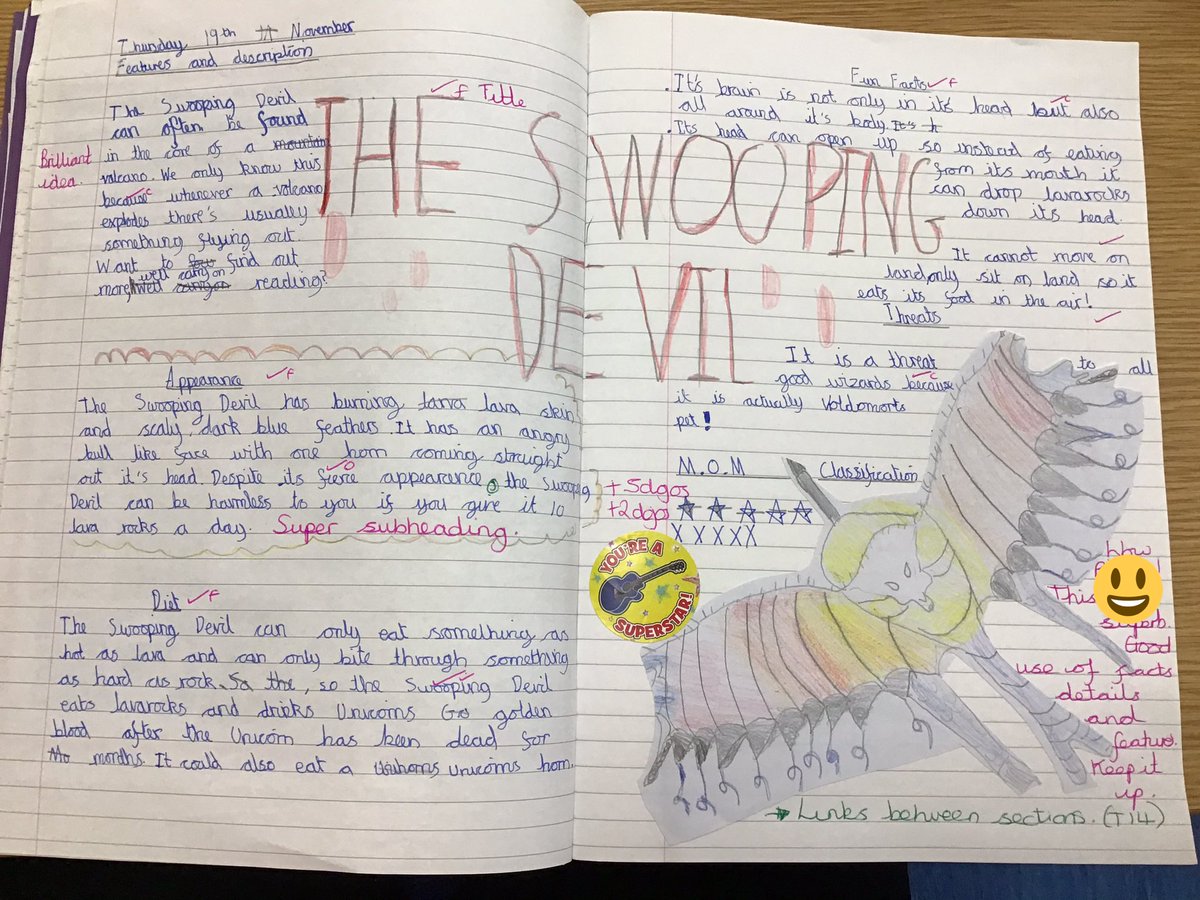 Thursday 19th November
Features and description
THE SWOOPING
DEVIL
f Title
The Swooping Devil
can often be found
in the core of a mountain
volcano. We only know this
because whenever a volcano
explodes there's usually
something flying out.
Want to find out
more, well carry on reading?
Brilliant
idea.
Appearance f
The Swooping Devil has burning larva lava skin
and scaly, dark blue feathers. It has an angry
bull like face with one horn coming straight
out it's head. Despite its fierce appearance, the Swooping
Devil can be harmless to you if you give it 10
lava rocks a day.
Super subheading.
Diet f
The Swooping Devil can only eat something as
hot as lava and can only bite through something
as hard as rock. So the, so the Swooping Devil
eats lavarocks and drinks Unicorns Go golden
blood after the Unicorn has been dead for
months. It could also eat a Unicorns horn.
Fun Facts f
.It's brain is not only in it's head but also
all around it's body. It's h
.Its head can open up so instead of eating
from its mouth it
can drop lavarocks
down its head.
It cannot move on
land, only sit on land so it
eats its food in the air!
Threats
It is a threat to all
good wizards because
it is actually Voldomorts
pet!
M.O.M Classification
+5dgos
+2dgos
X X X X X
YOU'RE A
SUPERSTAR!
This
superb.
Good
use of facts
details
and
features.
Keep it
up.
Links between sections. (T14)